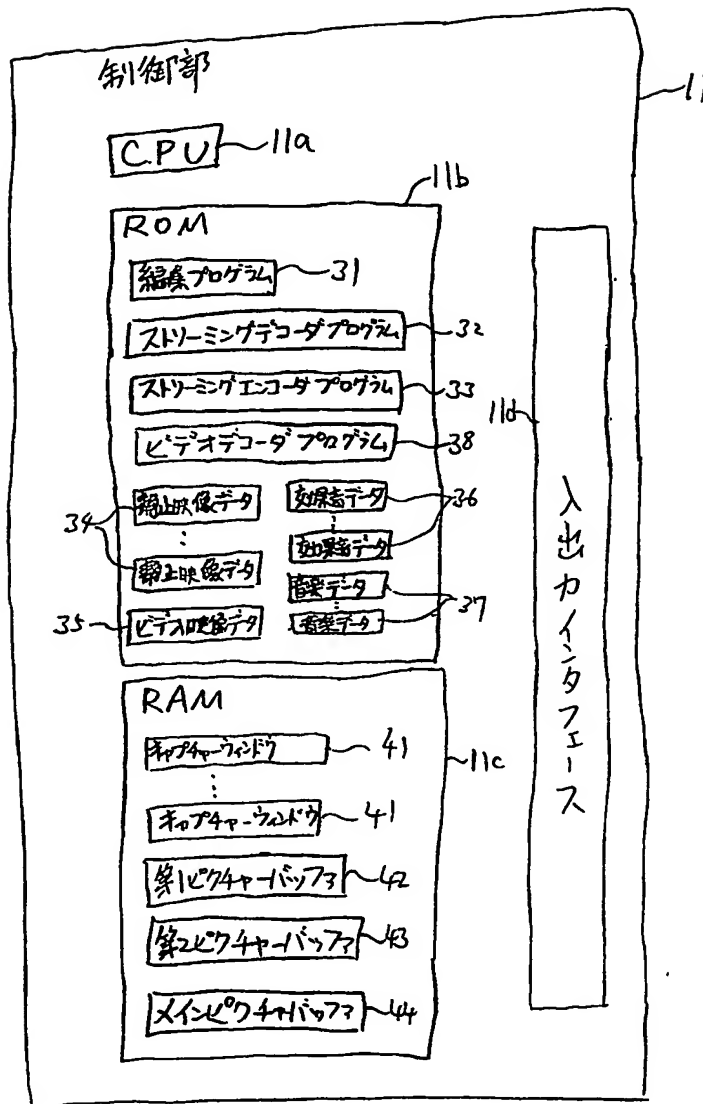 制御部
11
CPU
11a
11b
ROM
編集プログラム
31
ストリーミングデコーダプログラム
32
ストリーミングエンコーダプログラム
33
ビデオデコーダプログラム
38
34
静止映像データ
静止映像データ
効果音データ
効果音データ
36
音楽データ
音楽データ
37
35
ビデオ映像データ
11d
入出力インタフェース
RAM
11c
キャプチャーウィンドウ
41
キャプチャーウィンドウ
41
第1ピクチャーバッファ
42
第2ピクチャーバッファ
43
メインピクチャバッファ
44